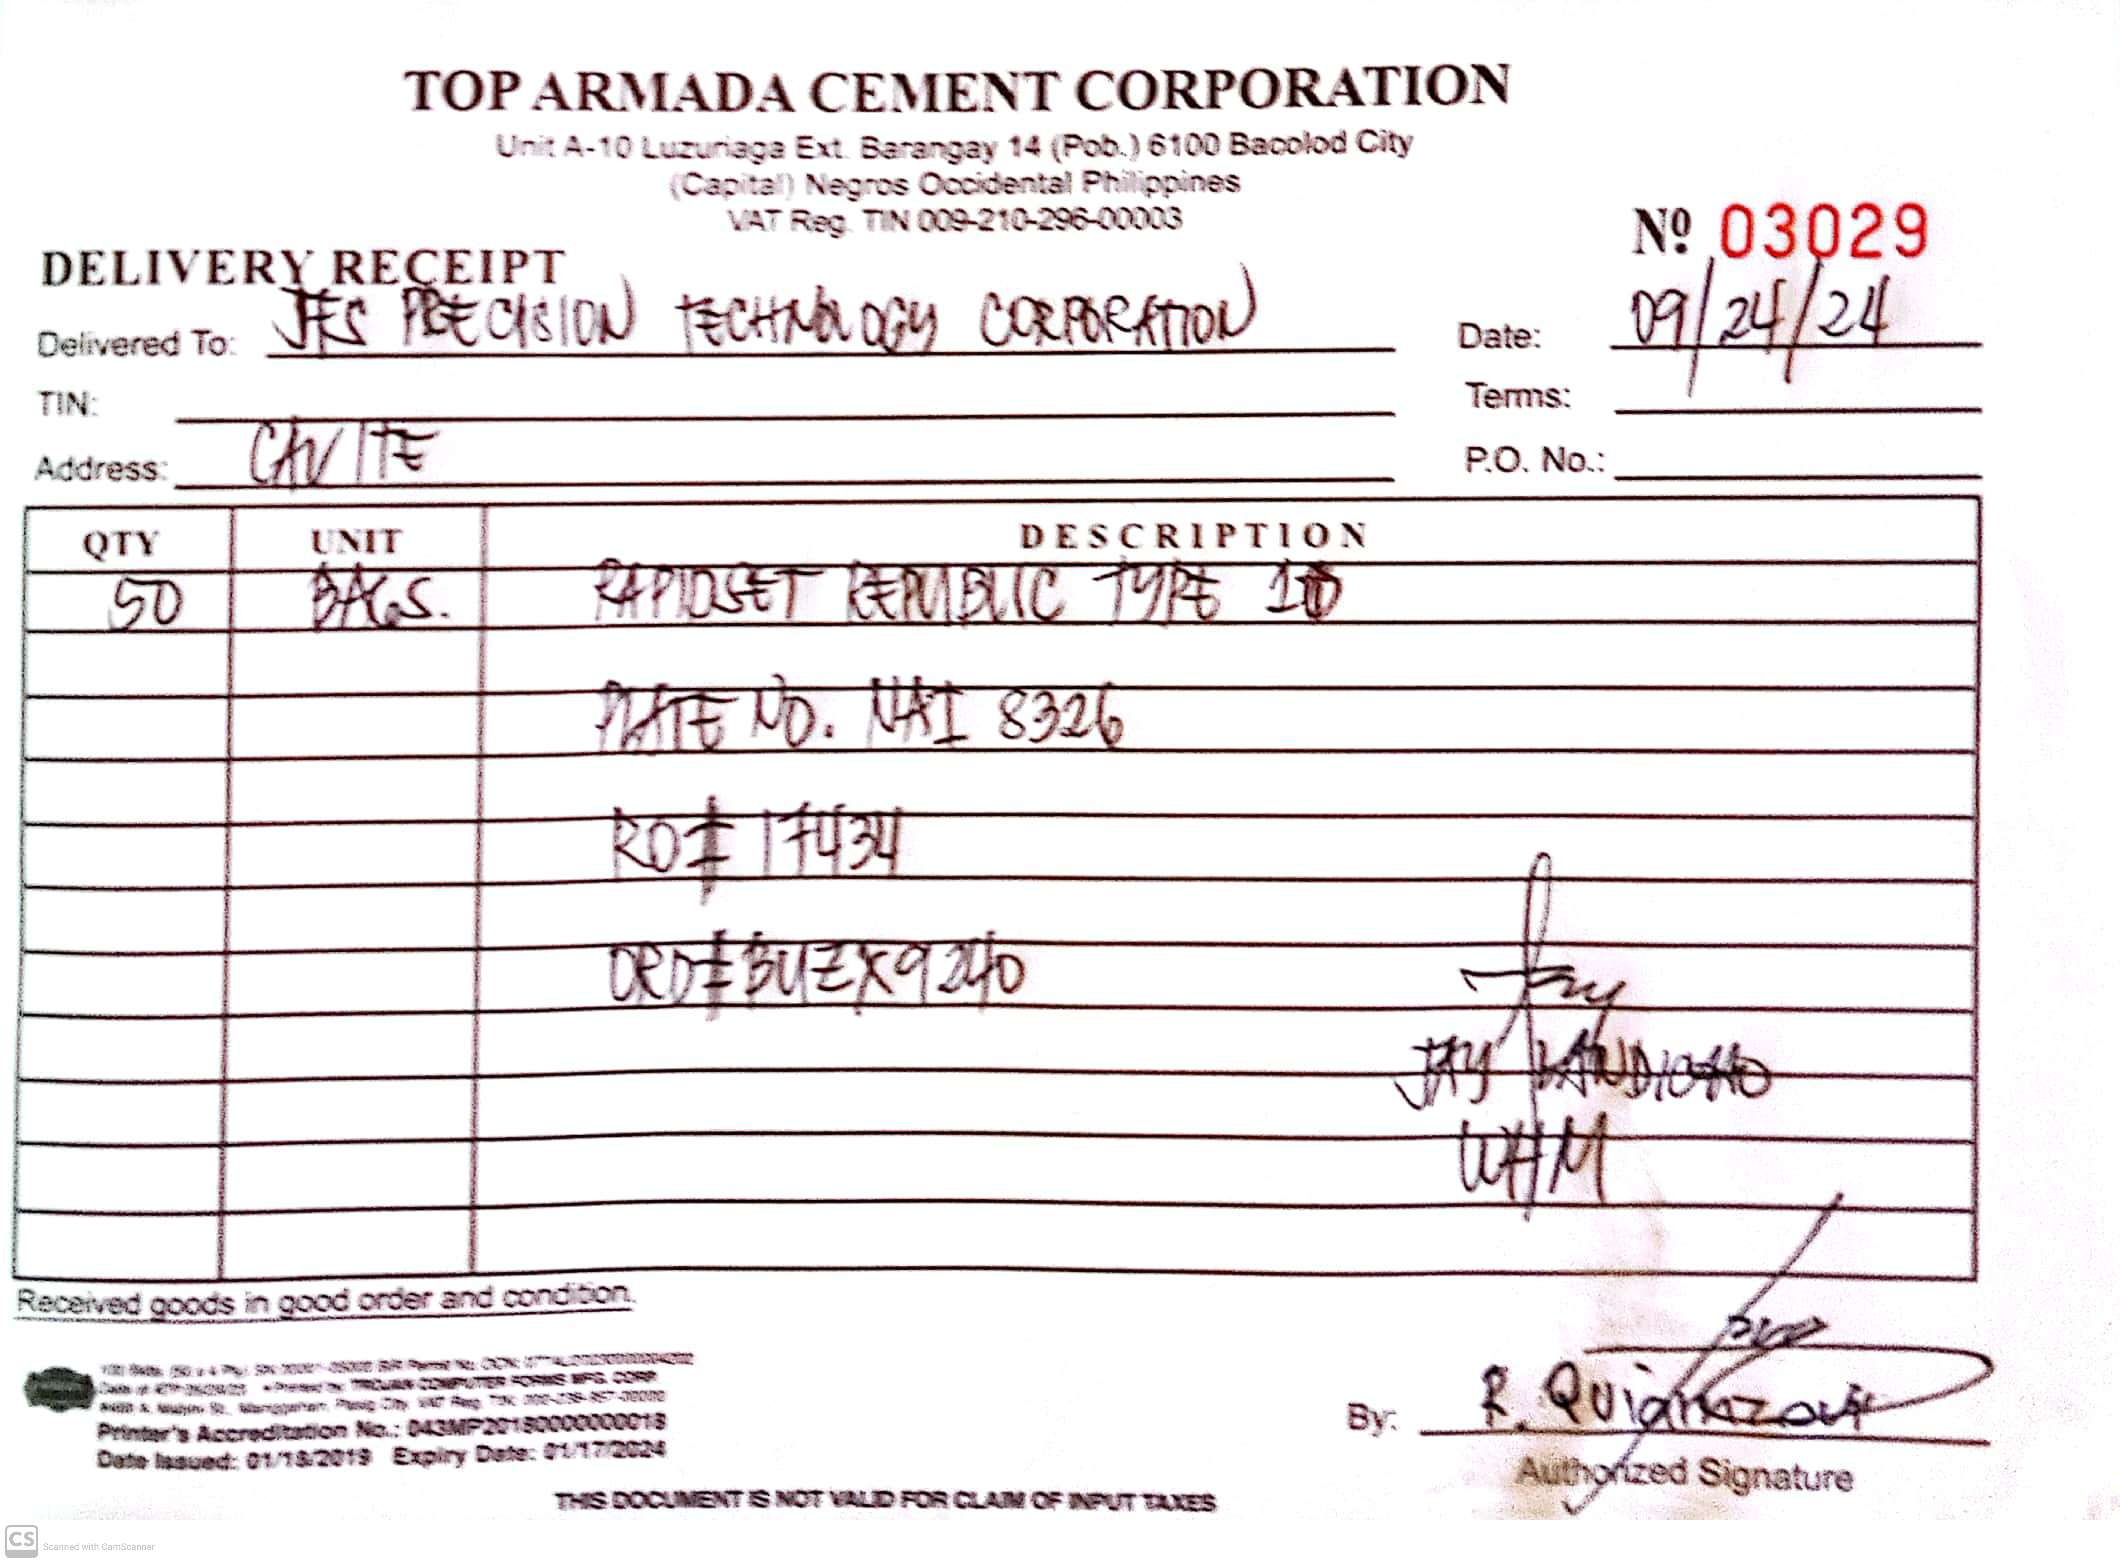 TOP ARMADA CEMENT CORPORATION
Unit A-10 Luzuriaga Ext. Barangay 14 (Pob.) 6100 Bacolod City
(Capital) Negros Occidental Philippines
VAT Reg. TIN 009-210-296-00003
Nº 03029
DELIVERY RECEIPT
Delivered To: JES PRECISION TECHNOLOGY CORPORATION Date: 09/24/24
TIN: Terms:
Address: CAVITE P.O. No.:
QTY UNIT DESCRIPTION
50 BAGS. RAPIDSET REPUBLIC TYPE
PLATE NO. NAI 8326
RO# 17434
ORD#
JAY
WHM
Received goods in good order and condition.
TROJAN COMPUTER FORMS MFG. CORP.
Printer's Accreditation No.: 043MP20180000000018
Date Issued: 01/18/2019 Expiry Date: 01/17/2024
By: R.
Authorized Signature
THIS DOCUMENT IS NOT VALID FOR CLAIM OF INPUT TAXES
CS Scanned with CamScanner